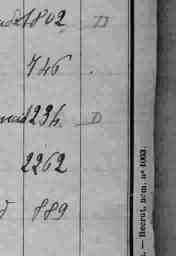 1802 D
746 .
1234 D
2262
889
. — Recrut, nom. nº 1003.